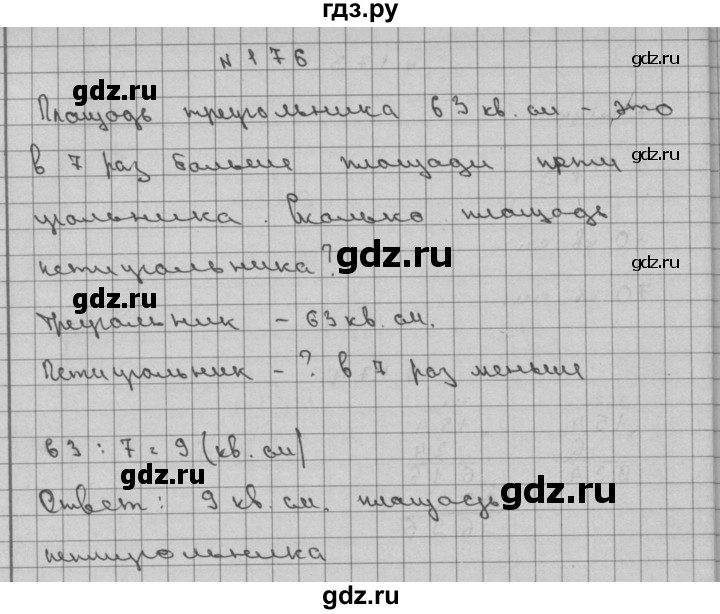 гдз.ру
N 176
gdz.ru
Площадь треугольника 63 кв. см - это
gdz.ru
в 7 раз больше площади
gdz.ru
угольника. Сколько площадь
пятиугольника?
gdz.ru
gdz.ru
gdz.ru
Треугольник - 63 кв. см.
Пятиугольник - ? в 7 раз меньше
gdz.ru
63 : 7 = 9 (кв. см)
gdz.ru
Ответ: 9 кв. см. площадь
gdz.ru
пятиугольника
gdz.ru